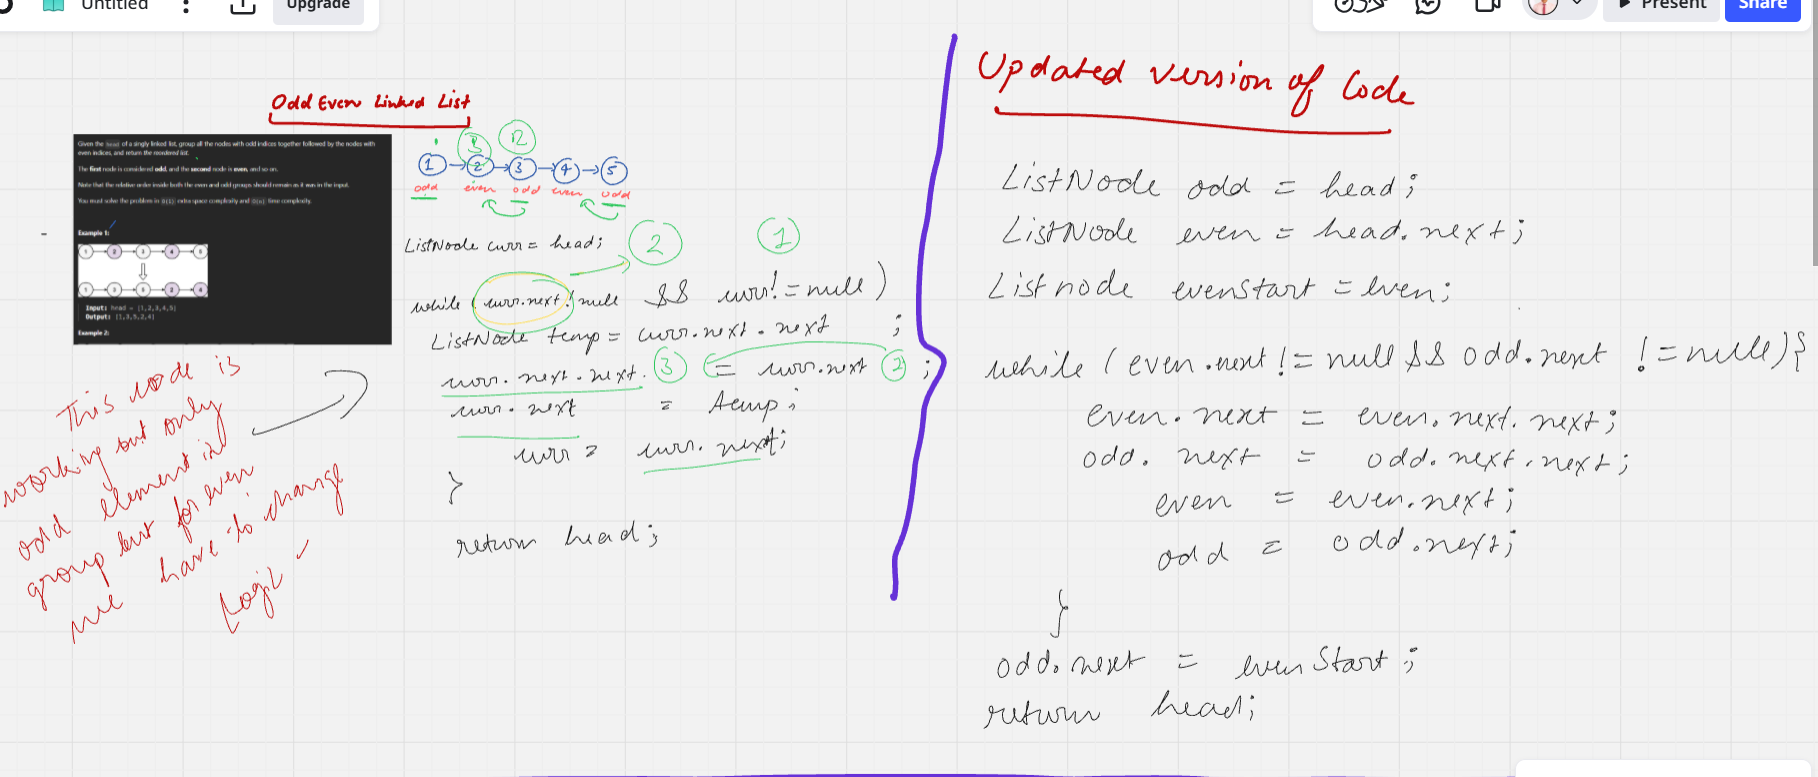 Untitled
Upgrade
Present
Share
Odd Even Linked List
Given the head of a singly linked list, group all the nodes with odd indices together followed by the nodes with
even indices, and return the reordered list.
The first node is considered odd, and the second node is even, and so on.
Note that the relative order inside both the even and odd groups should remain as it was in the input.
You must solve the problem in O(1) extra space complexity and O(n) time complexity.
Example 1:
1 2 3 4 5
1 3 5 2 4
Input: head = [1,2,3,4,5]
Output: [1,3,5,2,4]
Example 2:
1 2 3 4 5
odd even odd even odd
ListNode curr = head;
2 1
while (curr.next != null && curr != null)
ListNode temp = curr.next.next ;
curr.next.next. 3 = curr.next 2 ;
curr.next = temp;
curr = curr.next;
}
return head;
This code is
working but only
odd element in
group but for even
we have to change
logic
Updated version of Code
ListNode odd = head;
ListNode even = head.next;
Listnode evenStart = even;
while (even.next != null && odd.next != null){
even.next = even.next.next;
odd.next = odd.next.next;
even = even.next;
odd = odd.next;
}
odd.next = evenStart;
return head;